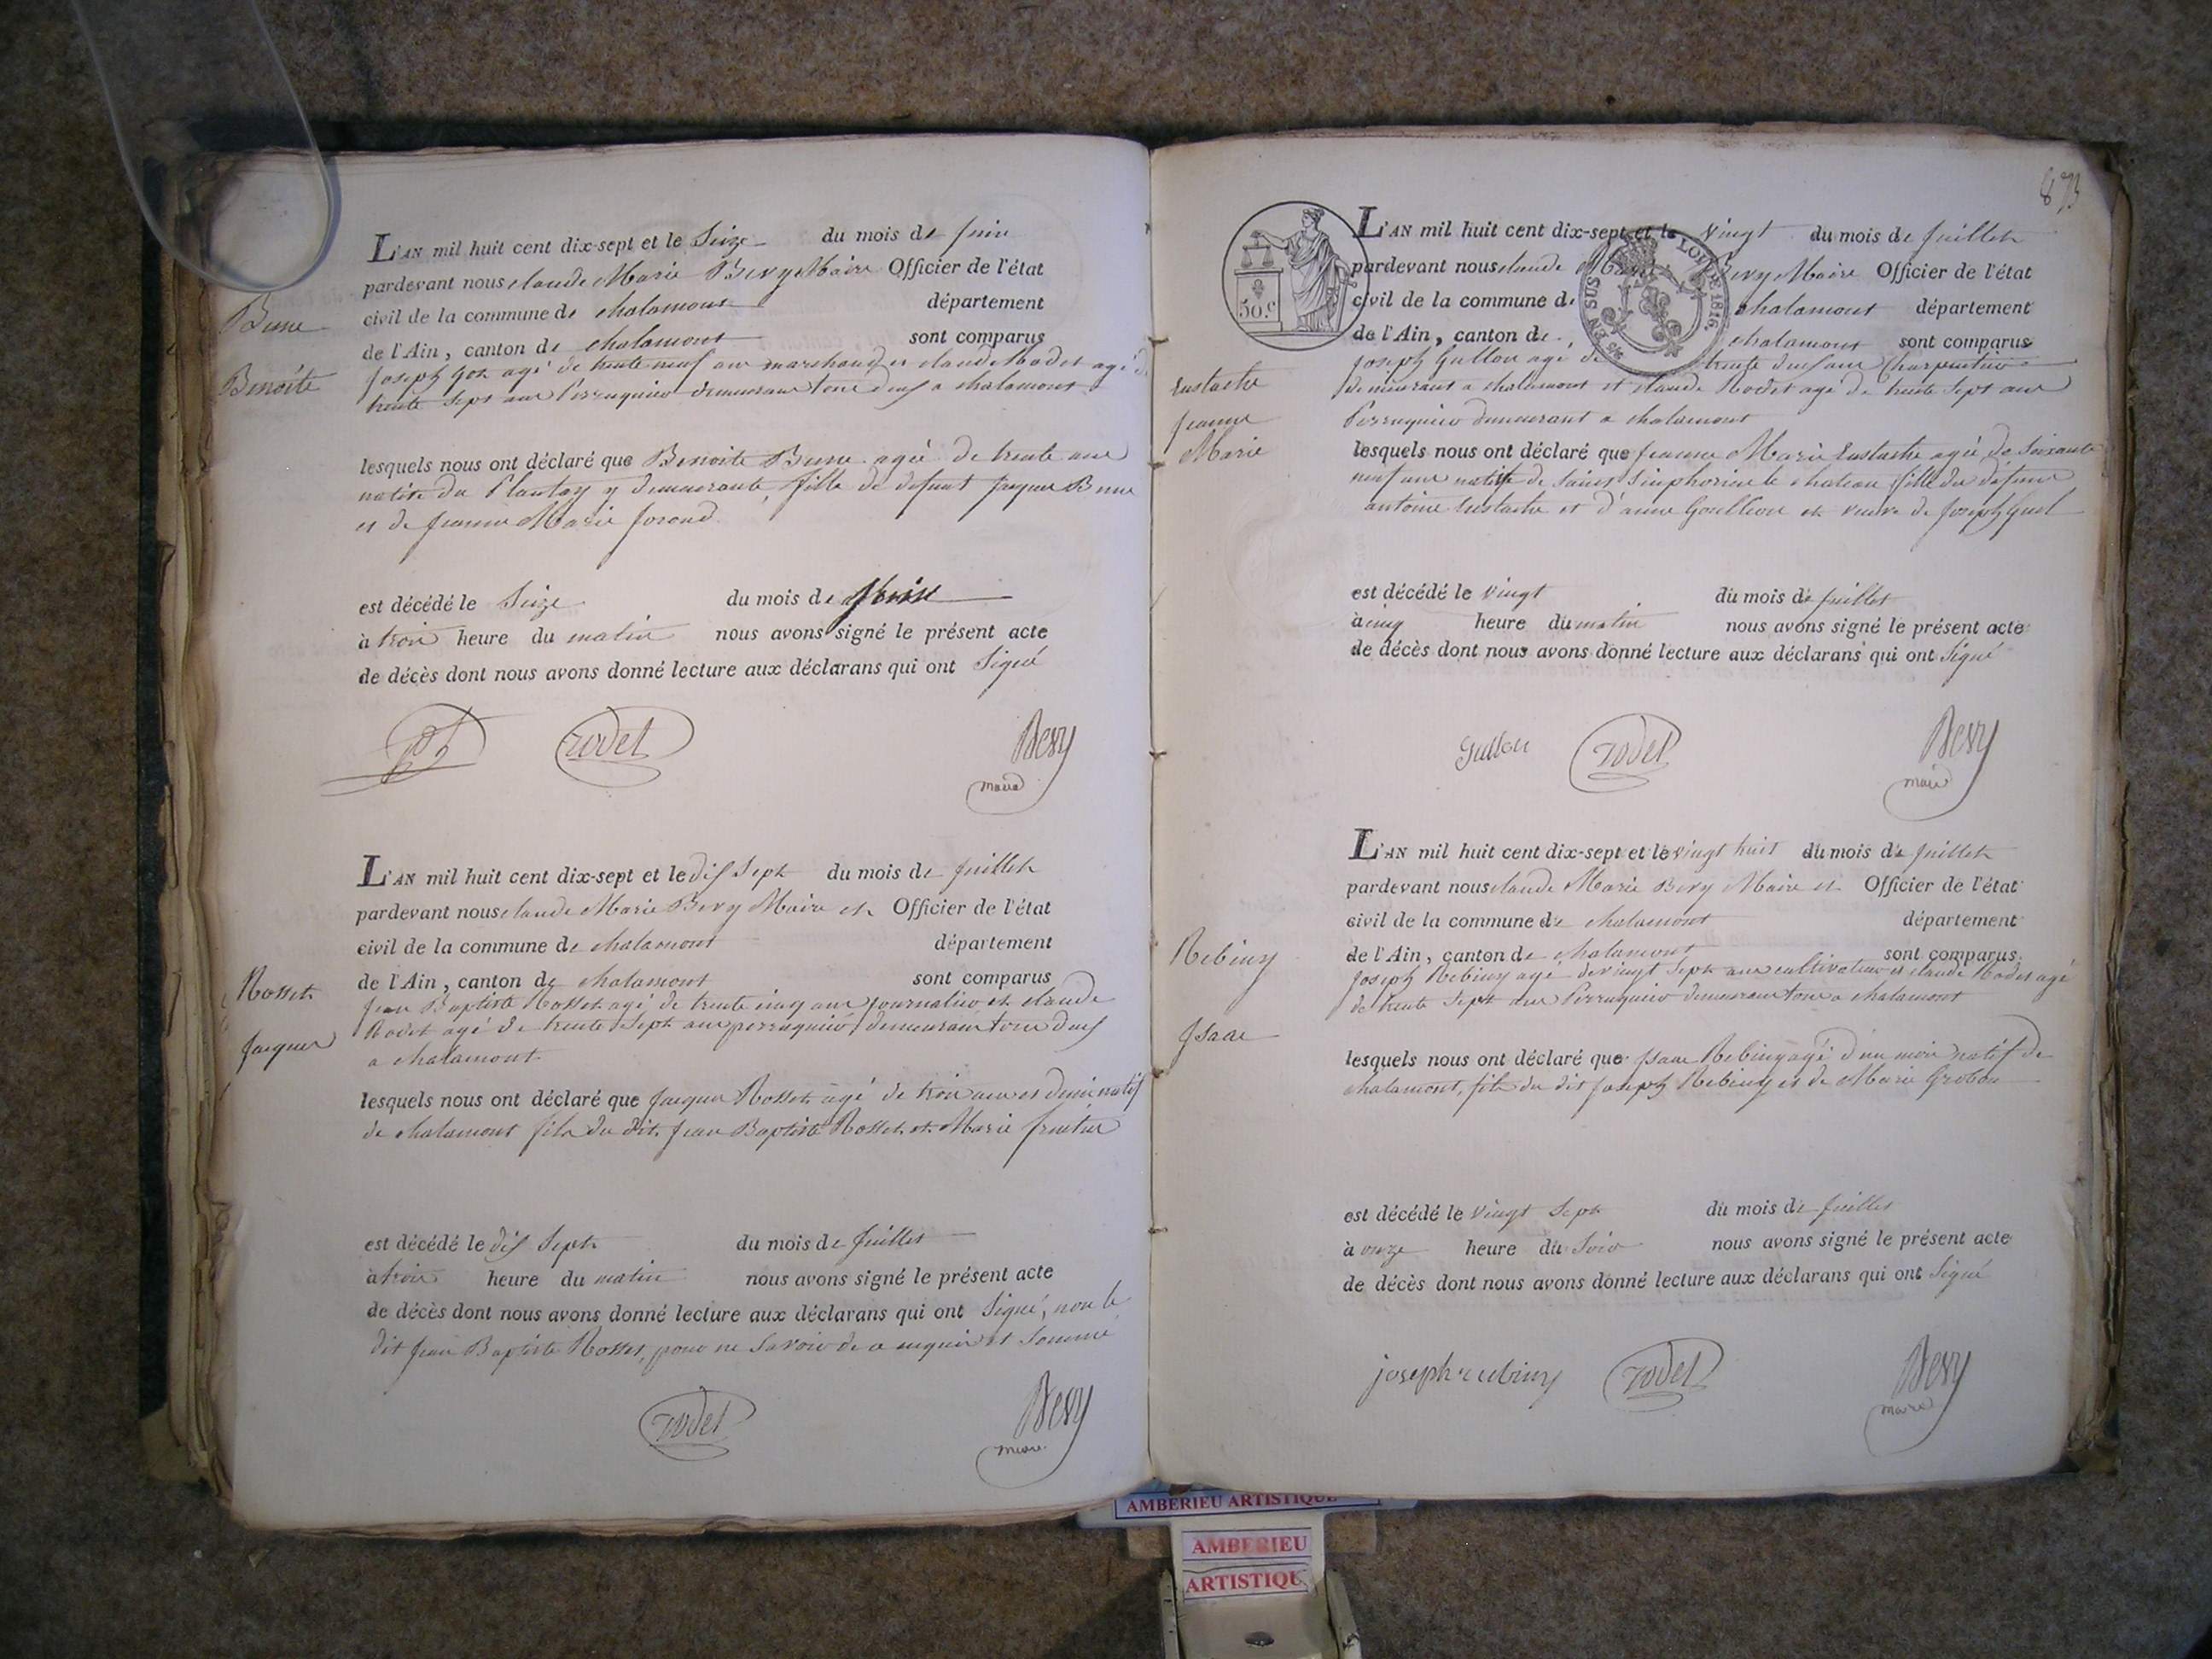 L'AN mil huit cent dix-sept et le Seize du mois de Juin
pardevant nous claude Marie Bevy Maire Officier de l'état
civil de la commune de chalamont département
de l'Ain, canton de chalamont sont comparus
Joseph Goz agé de trente neuf ans marchand et claude Rodet agé de
trente Sept ans Perruquier demeurant tous deux a chalamont
Bune
Benoite
lesquels nous ont déclaré que Benoite Bune agée de trente ans
native du Plantay y demeurante, fille de defunt Jacques Bune
et de Jeanne Marie Jorand
est décédé le Seize du mois de Juin
à trois heure du matin nous avons signé le présent acte
de décès dont nous avons donné lecture aux déclarans qui ont Signé
rodet Bevy
maire
L'AN mil huit cent dix-sept et le dix Sept du mois de Juillet
pardevant nous claude Marie Bevy Maire et Officier de l'état
civil de la commune de chalamont département
de l'Ain, canton de chalamont sont comparus
Jean Baptiste Rosset agé de trente cinq ans journalier et claude
Rodet agé de trente Sept ans perruquier demeurant tous deux
a chalamont
Rosset
Jacques
lesquels nous ont déclaré que Jacques Rosset agé de trois ans et demi natif
de chalamont fils du dit Jean Baptiste Rosset et Marie
est décédé le dix Sept du mois de Juillet
à trois heure du matin nous avons signé le présent acte
de décès dont nous avons donné lecture aux déclarans qui ont Signé, non le
dit Jean Baptiste Rosset, pour ne Savoir de ce enquis et Sommé
rodet Bevy
maire
873
50.c
EN SUS LOI DE 1816.
L'AN mil huit cent dix-sept et le vingt du mois de Juillet
pardevant nous claude Marie Bevy Maire Officier de l'état
civil de la commune de chalamont département
de l'Ain, canton de chalamont sont comparus
Joseph Gullon agé de trente deux ans Charpentier
demeurant a chalamont et claude Rodet agé de trente Sept ans
Perruquier demeurant a chalamont
Eustache
Jeanne
Marie
lesquels nous ont déclaré que Jeanne Marie Eustache agée de Soixante
neuf ans native de Saint Simphorien le chateau fille du défunt
antoine Eustache et d'anne et veuve de Joseph
est décédé le vingt du mois de Juillet
à cinq heure du matin nous avons signé le présent acte
de décès dont nous avons donné lecture aux déclarans qui ont Signé
Gullon rodet Bevy
maire
L'AN mil huit cent dix-sept et le vingt huit du mois de Juillet
pardevant nous claude Marie Bevy Maire et Officier de l'état
civil de la commune de chalamont département
de l'Ain, canton de chalamont sont comparus
Joseph Rebiny agé de vingt Sept ans cultivateur et claude Rodet agé
de trente Sept ans Perruquier demeurant tous a chalamont
Rebiny
Isaac
lesquels nous ont déclaré que Isaac Rebiny agé d'un mois natif de
chalamont, fils du dit Joseph Rebiny et de Marie Grobon
est décédé le vingt Sept du mois de Juillet
à onze heure du Soir nous avons signé le présent acte
de décès dont nous avons donné lecture aux déclarans qui ont Signé
joseph rebiny rodet Bevy
maire
AMBERIEU ARTISTIQUE
AMBERIEU
ARTISTIQU